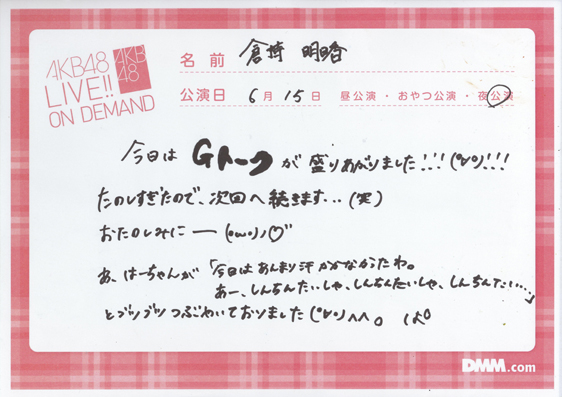 AKB48
LIVE!!
ON DEMAND
AKB
48
名前 倉持 明日香
公演日 6月15日 昼公演・おやつ公演・夜公演
今日は Gトーク が 盛りあがりました!!!(°∀°)!!!
たのしすぎたので、次回へ続きます…(笑)
おたのしみにー(oωo)ノ♡"
あ、はーちゃんが「今日はあんまり汗かかなかったわ。
あー、しんちんたいしゃ、しんちんたいしゃ、しんちんたい…」
とブツブツつぶやいておりました(°∀°)^^。
DMM.com